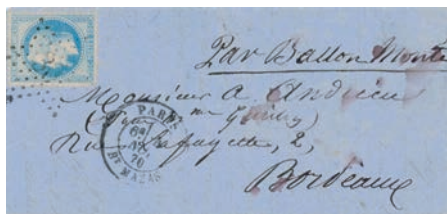 Par Ballon Monté
Monsieur A Andrieu
Rue Lafayette, 2,
Bordeaux
PARIS
6E
70
Bt MAZAS